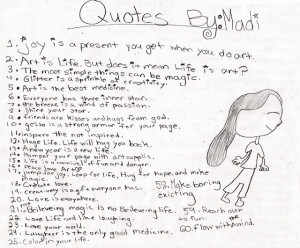 Quotes By: Madi
1. Joy is a present you get when you do art.
2. Art is Life. But does it mean Life is art?
3. The most simple things can be magic.
4. Glitter is a sprinkle of creativity.
5. Art is the best medicine.
6. Everyone has there inner star.
7. the breeze is a wind of passion.
8. Shine your star.
9. friends are kisses and hugs from god.
10. gesso is a strong armor for your page.
11. Inspire the not inspired.
12. Huge Life. Life will hug you back.
13. A new year is a new life.
14. Pamper your page with art supplies.
15. Life is a carnival of fun and danger.
16. Peace love Art
17. jump for joy. Leap for life, Hug for hope, and make magic.
18. Create love.
19. creativity is a gift everyone has.
20. Love is everywhere.
21. Believing magic is no Believing life.
22. Love Life and like laughing.
23. Love your world.
24. Laughter is the only good medicine.
25. Color in your life.
58. Make boring exciting
59. Reach our fun.
60. Flow with a mind.